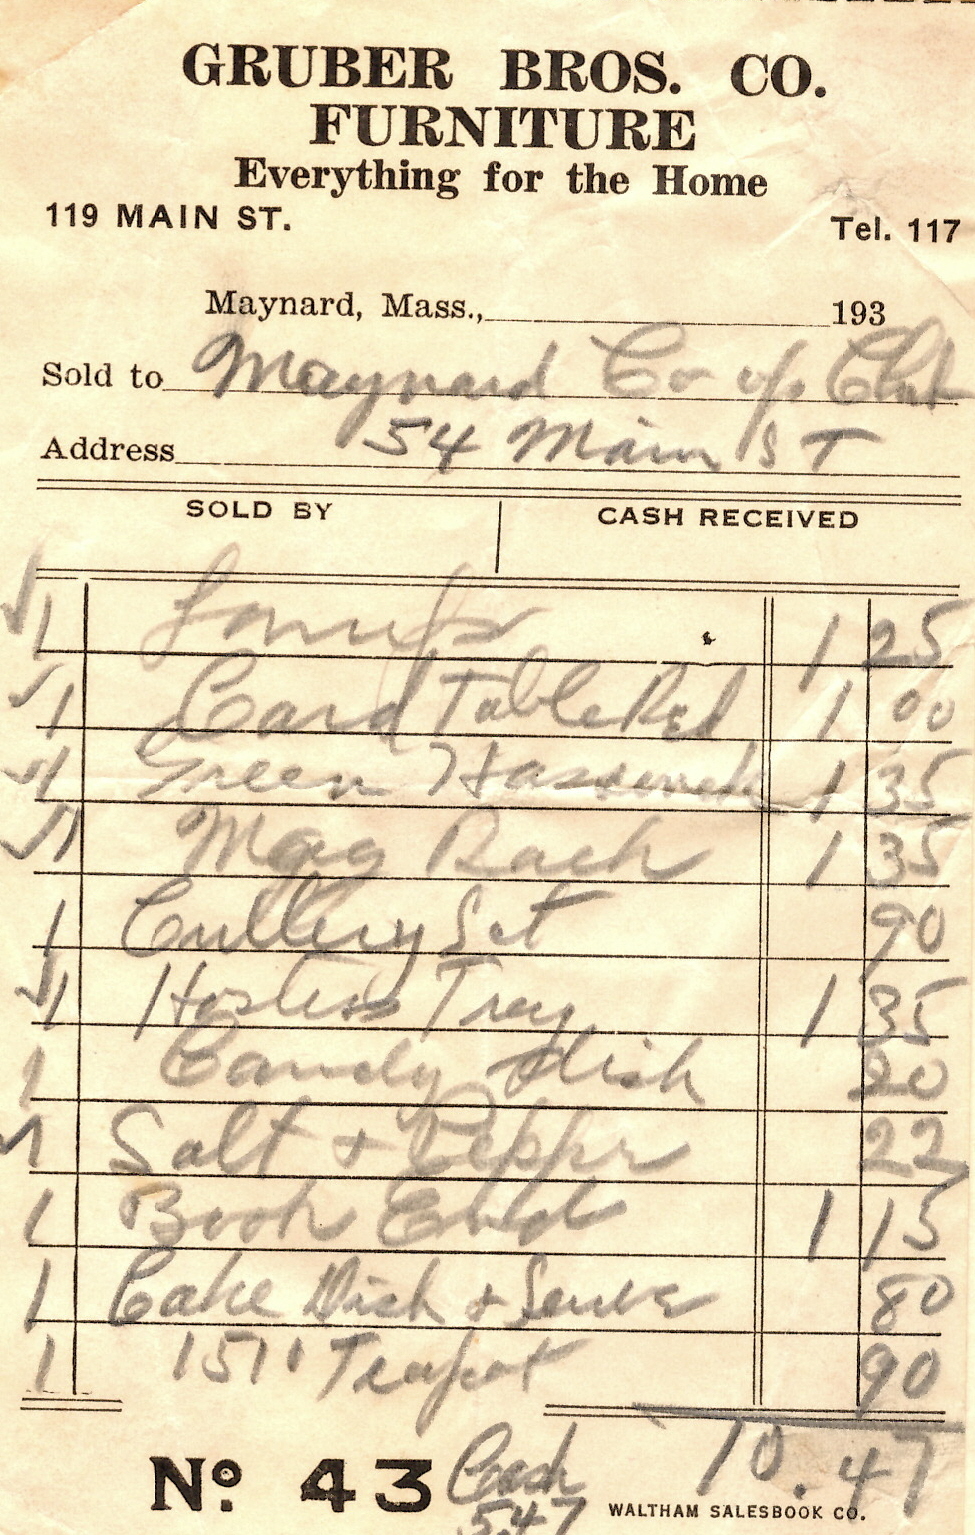 GRUBER BROS. CO.
FURNITURE
Everything for the Home
119 MAIN ST. Tel. 117
Maynard, Mass., 193
Sold to Maynard Co-op. Club
Address 54 Main ST
SOLD BY CASH RECEIVED
1 Lamp 1 25
1 Card Table Red 1 00
1 Green Hassock 1 35
1 Mag Rack 1 35
1 Cuttlery Set 90
1 Hostess Tray 1 35
1 Candy Dish 20
1 Salt + Peppr 22
1 Book End 1 15
1 Cake Dish + Server 80
1 1511 Teapot 90
10.47
No. 43 Cash
5.47 WALTHAM SALESBOOK CO.